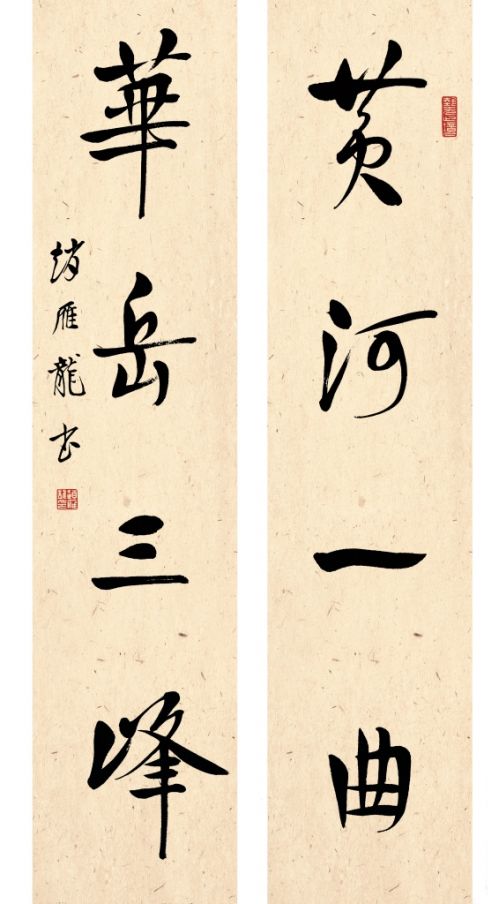 黄河一曲
華岳三峰
趙雁龍书